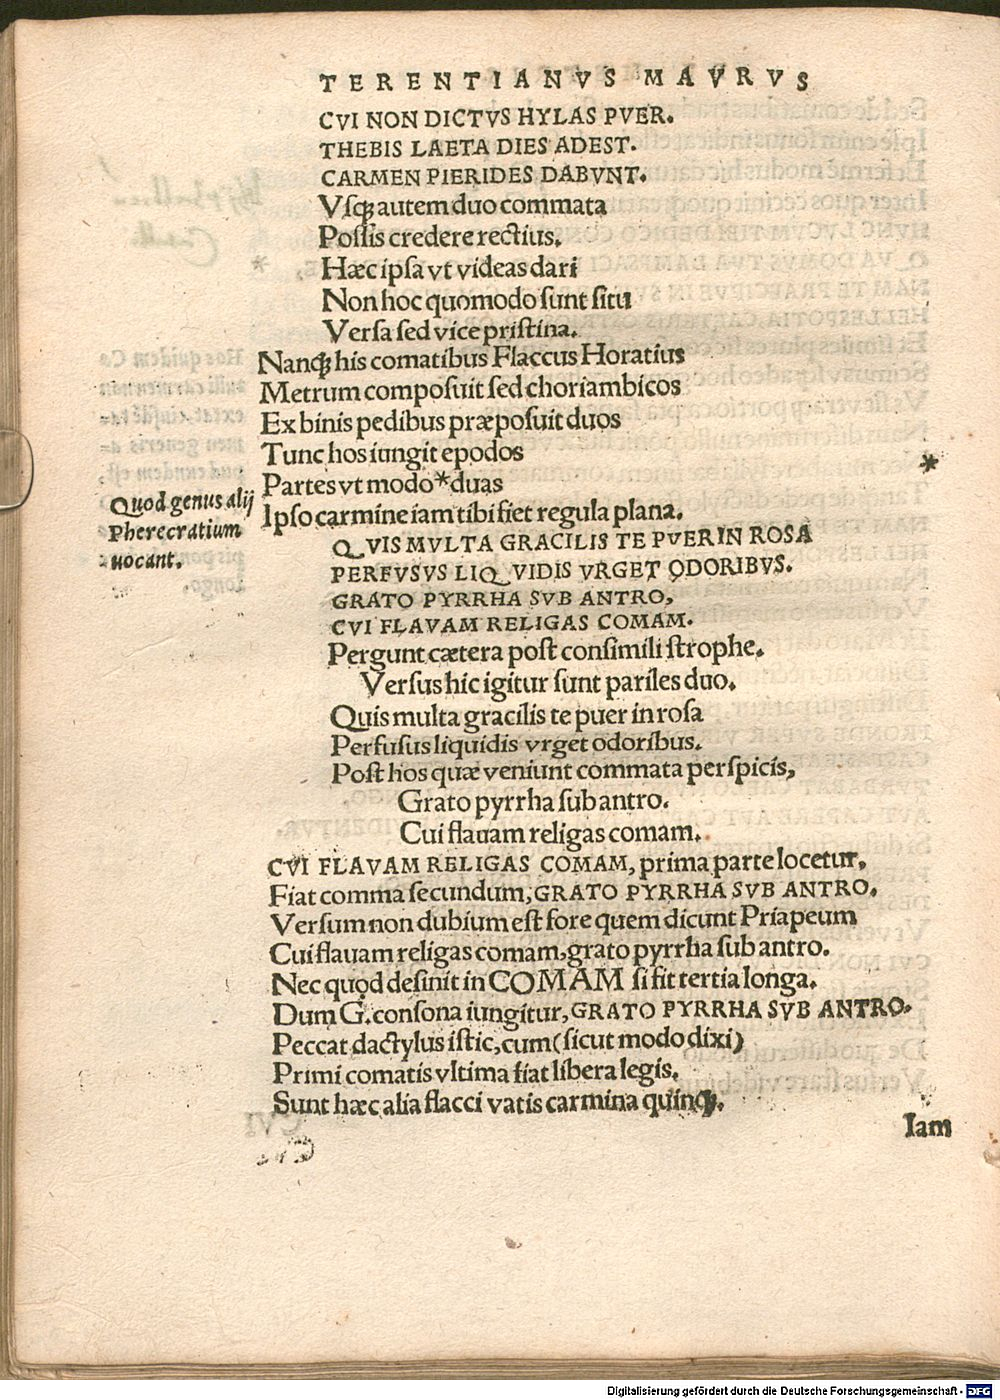 TERENTIANVS MAVRVS
CVI NON DICTVS HYLAS PVER.
THEBIS LAETA DIES ADEST.
CARMEN PIERIDES DABVNT.
Vsqꝫ autem duo commata
Possis credere rectius.
Hæc ipsa vt videas dari
Non hoc quomodo sunt situ
Versa sed vice pristina.
Nanqꝫ his comatibus Flaccus Horatius
Metrum composuit sed choriambicos
Ex binis pedibus præposuit duos
Tunc hos iungit epodos
Partes vt modo*duas
*
Ipso carmine iam tibi fiet regula plana.
Quod genus alij
Pherecratium
uocant.
QVIS MVLTA GRACILIS TE PVER IN ROSA
PERFVSVS LIQVIDIS VRGET ODORIBVS.
GRATO PYRRHA SVB ANTRO,
CVI FLAVAM RELIGAS COMAM.
Pergunt cætera post consimili strophe.
Versus hic igitur sunt pariles duo.
Quis multa gracilis te puer in rosa
Perfusus liquidis vrget odoribus.
Post hos quæ veniunt commata perspicis,
Grato pyrrha sub antro.
Cui flauam religas comam.
CVI FLAVAM RELIGAS COMAM, prima parte locetur,
Fiat comma secundum, GRATO PYRRHA SVB ANTRO.
Versum non dubium est fore quem dicunt Priapeum
Cui flauam religas comam, grato pyrrha sub antro.
Nec quod desinit in COMAM si fit tertia longa.
Dum G. consona iungitur, GRATO PYRRHA SVB ANTRO.
Peccat dactylus istic, cum (sicut modo dixi)
Primi comatis vltima fiat libera legis.
Sunt hæc alia flacci vatis carmina quinqꝫ.
Iam
Digitalisierung gefördert durch die Deutsche Forschungsgemeinschaft - DFG